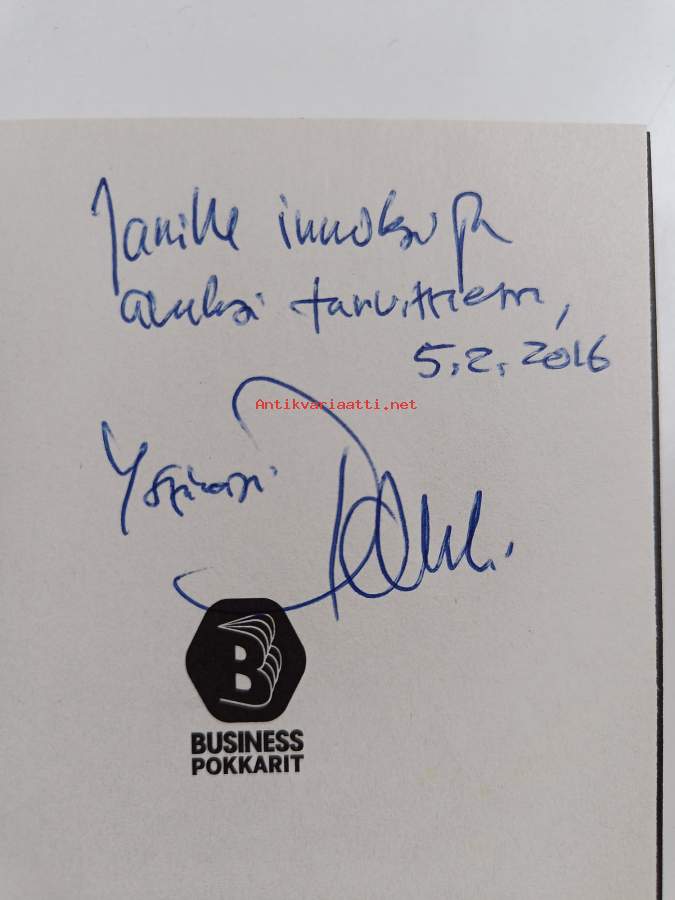 Janille innoksi ja
avuksi tarvittiessa,
5.2.2016
Antikvariaatti.net
Ystäväsi
B
BUSINESS
POKKARIT